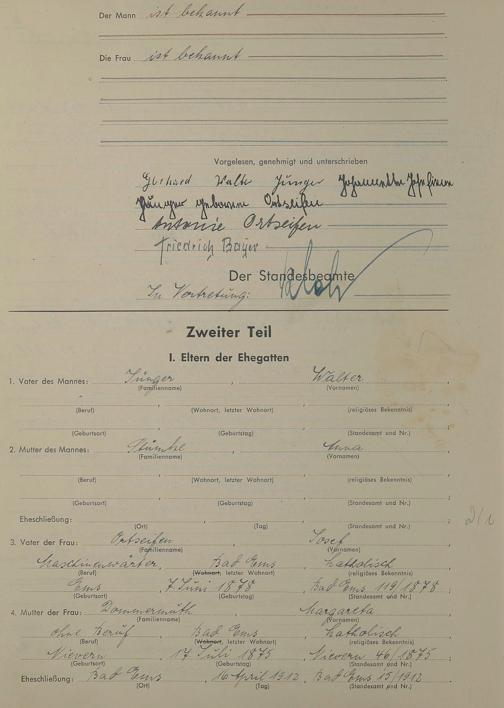 Der Mann ist bekannt
Die Frau ist bekannt
Vorgelesen, genehmigt und unterschrieben
Gerhard Walter Jünger Johannette Josefine
Jünger geborene Ortseifen
Antonie Ortseifen
Friedrich Bayer
Der Standesbeamte
In Vertretung:
Zweiter Teil
I. Eltern der Ehegatten
1. Vater des Mannes: Jünger, Walter
(Familienname) (Vornamen)
(Beruf) (Wohnort, letzter Wohnort) (religiöses Bekenntnis)
(Geburtsort) (Geburtstag) (Standesamt und Nr.)
2. Mutter des Mannes: Anna
(Familienname) (Vornamen)
(Beruf) (Wohnort, letzter Wohnort) (religiöses Bekenntnis)
(Geburtsort) (Geburtstag) (Standesamt und Nr.)
Eheschließung:
(Ort) (Tag) (Standesamt und Nr.)
3. Vater der Frau: Ortseifen, Josef
(Familienname) (Vornamen)
Maschinenwärter, Bad Ems, katholisch
(Beruf) (Wohnort, letzter Wohnort) (religiöses Bekenntnis)
Ems, 7 Juni 1878, Bad Ems 119/1878;
(Geburtsort) (Geburtstag) (Standesamt und Nr.)
4. Mutter der Frau: Dommermuth, Margareta
(Familienname) (Vornamen)
ohne Beruf, Bad Ems, katholisch
(Beruf) (Wohnort, letzter Wohnort) (religiöses Bekenntnis)
Nievern, 17 Juli 1875, Nievern 46/1875;
(Geburtsort) (Geburtstag) (Standesamt und Nr.)
Eheschließung: Bad Ems, 16 April 1912, Bad Ems 15/1912
(Ort) (Tag) (Standesamt und Nr.)